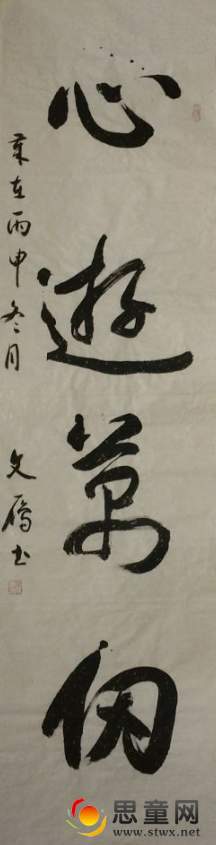 心遊萬仞
葉在丙申冬月 文雁書
思童网
www.stwx.net